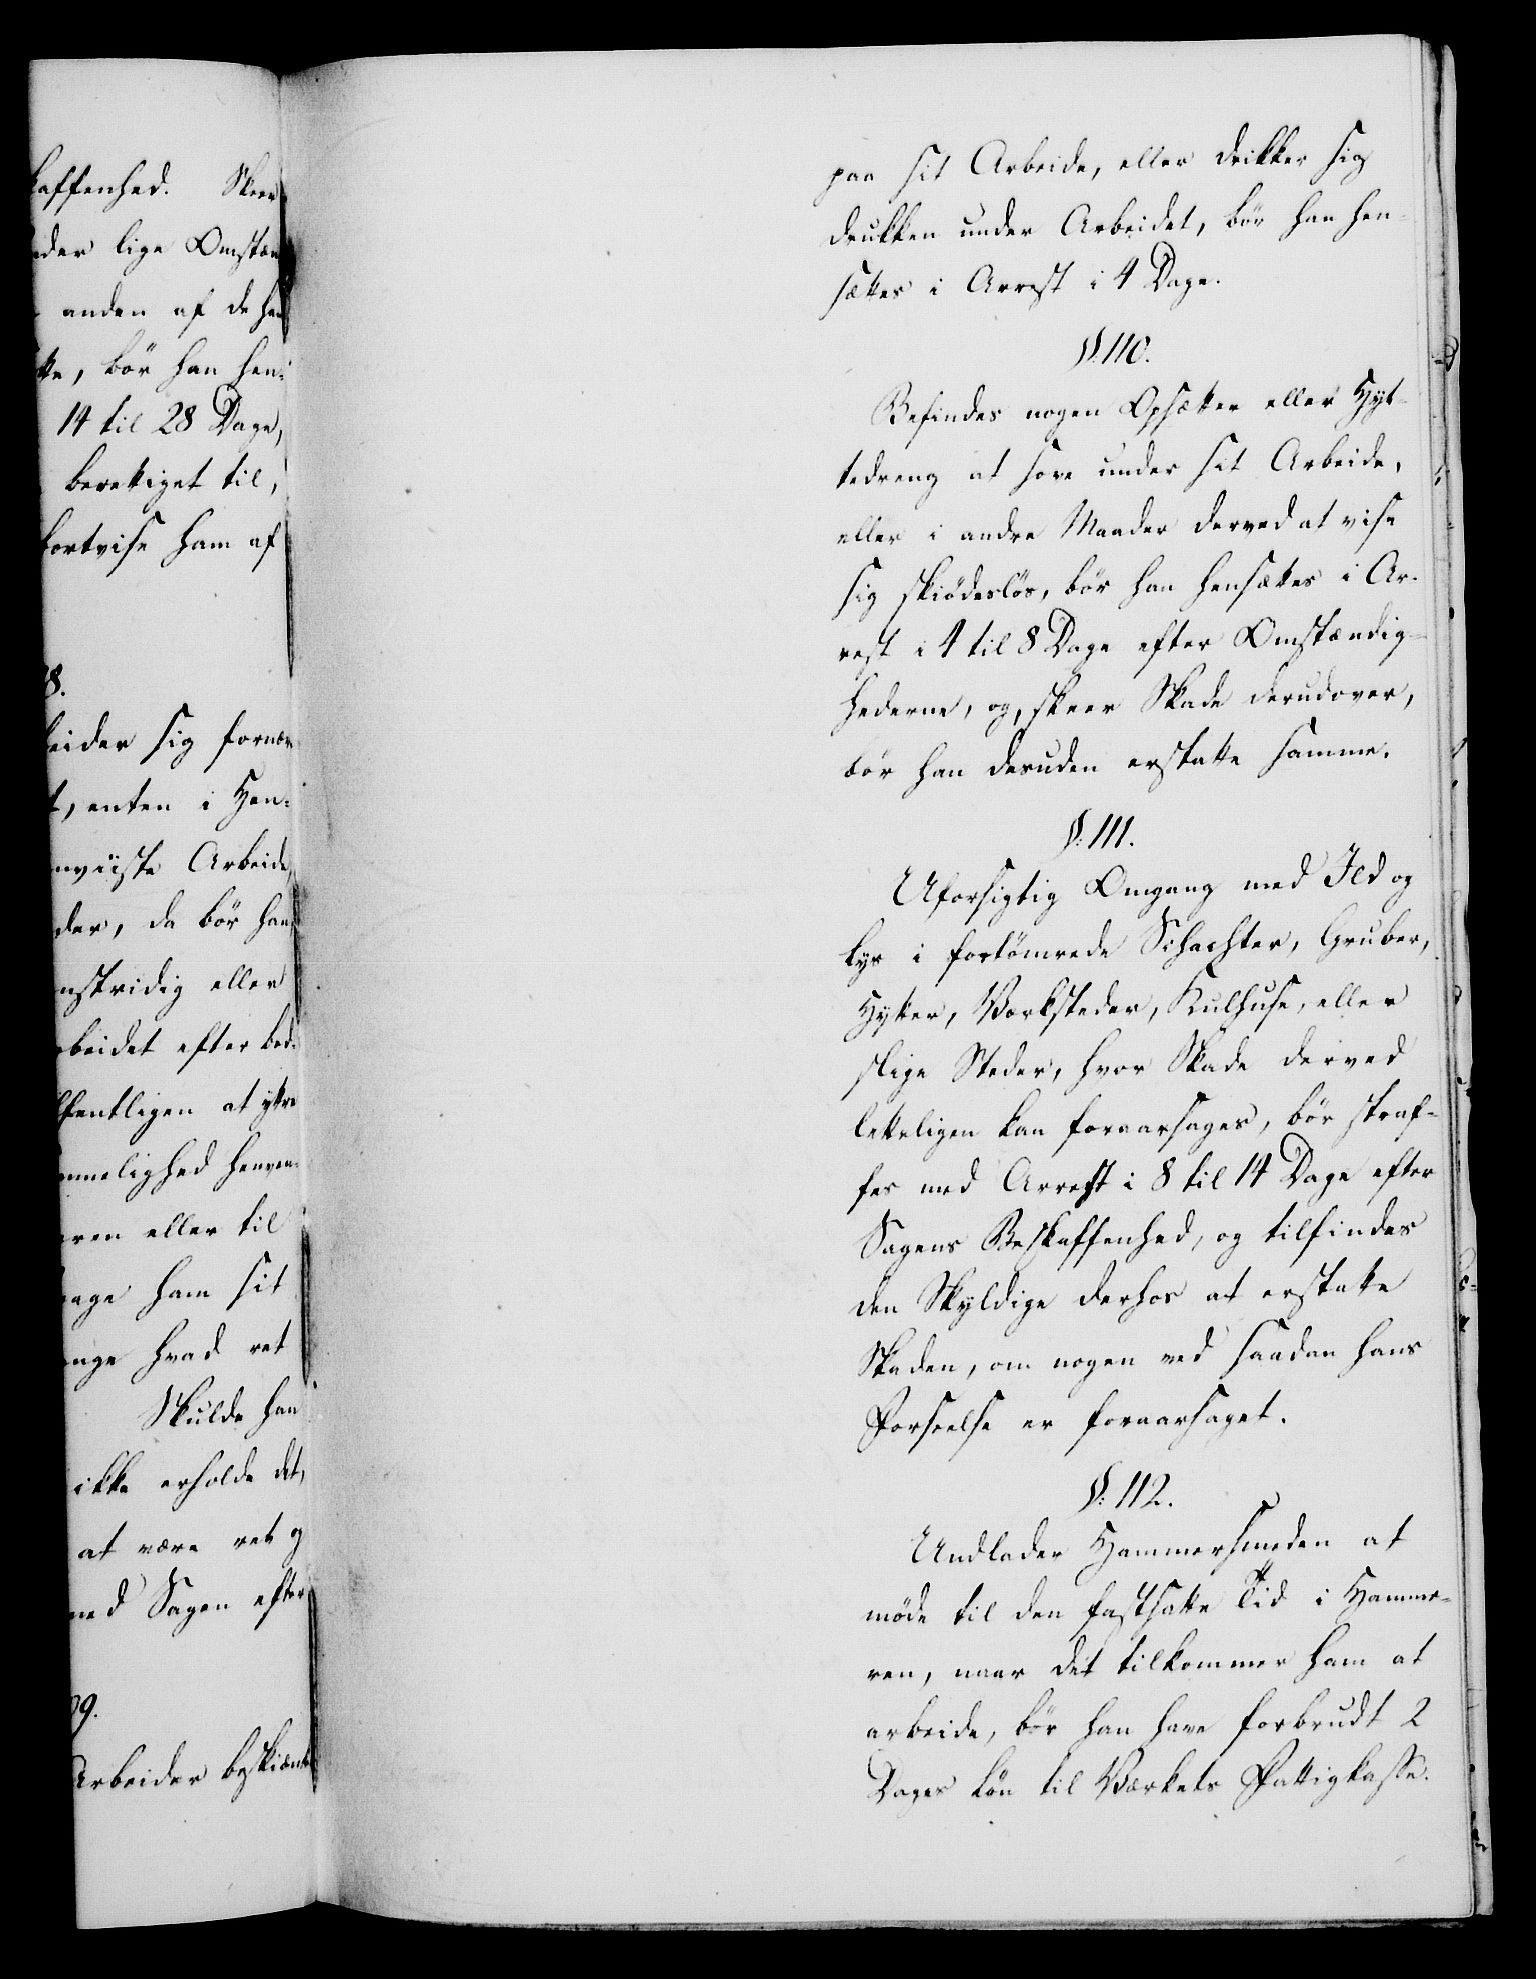 kaffenhed. Skeer
nder lige Omstæn
anden af de hen
tte, bör han hen-
14 til 28 Dage,
berettiget til,
bortvise ham af
8.
beider sig fornær
t, enten i Hen-
nviiste Arbeide,
der, da bör han
nstridig eller
rbeidet efter bed-
ffentligen at yttre
mmelighed henven-
eren eller til
age ham sit
ange hvad ret
Skulde han
ikke erholde det,
at være ret og
med Sagen efter
09.
Arbeider beskiænk
paa sit Arbeide, eller drikker sig
drukken under Arbeidet, bör han hen-
sættes i Arrest i 4 Dage.
§. 110.
Befindes nogen Opsætter eller Hyt-
tedreng at sove under sit Arbeide,
eller i andre Maader derved at vise
sig skiödeslös, bör han hensættes i Ar-
rest i 4 til 8 Dage efter Omstændig-
hederne, og, skeer Skade derudover,
bör han desuden erstatte samme.
§: 111.
Uforsigtig Omgang med Ild og
Lys i fortömrede Schachter, Gruber,
Hytter, Værksteder, Kulhuse, eller
slige Steder, hvor Skade derved
letteligen kan foraarsages, bör straf-
fes med Arrest i 8 til 14 Dage efter
Sagens Beskaffenhed, og tilfindes
den Skyldige derhos at erstatte
Skaden, om nogen ved saadan hans
Forseelse er foraarsaget.
§: 112.
Undlader Hammersmeden at
möde til den fastsatte Tid i Hamme-
ren, naar det tilkommer ham at
arbeide, bör han have forbrudt 2
Dages Lön til Værkets Fattigkasse.